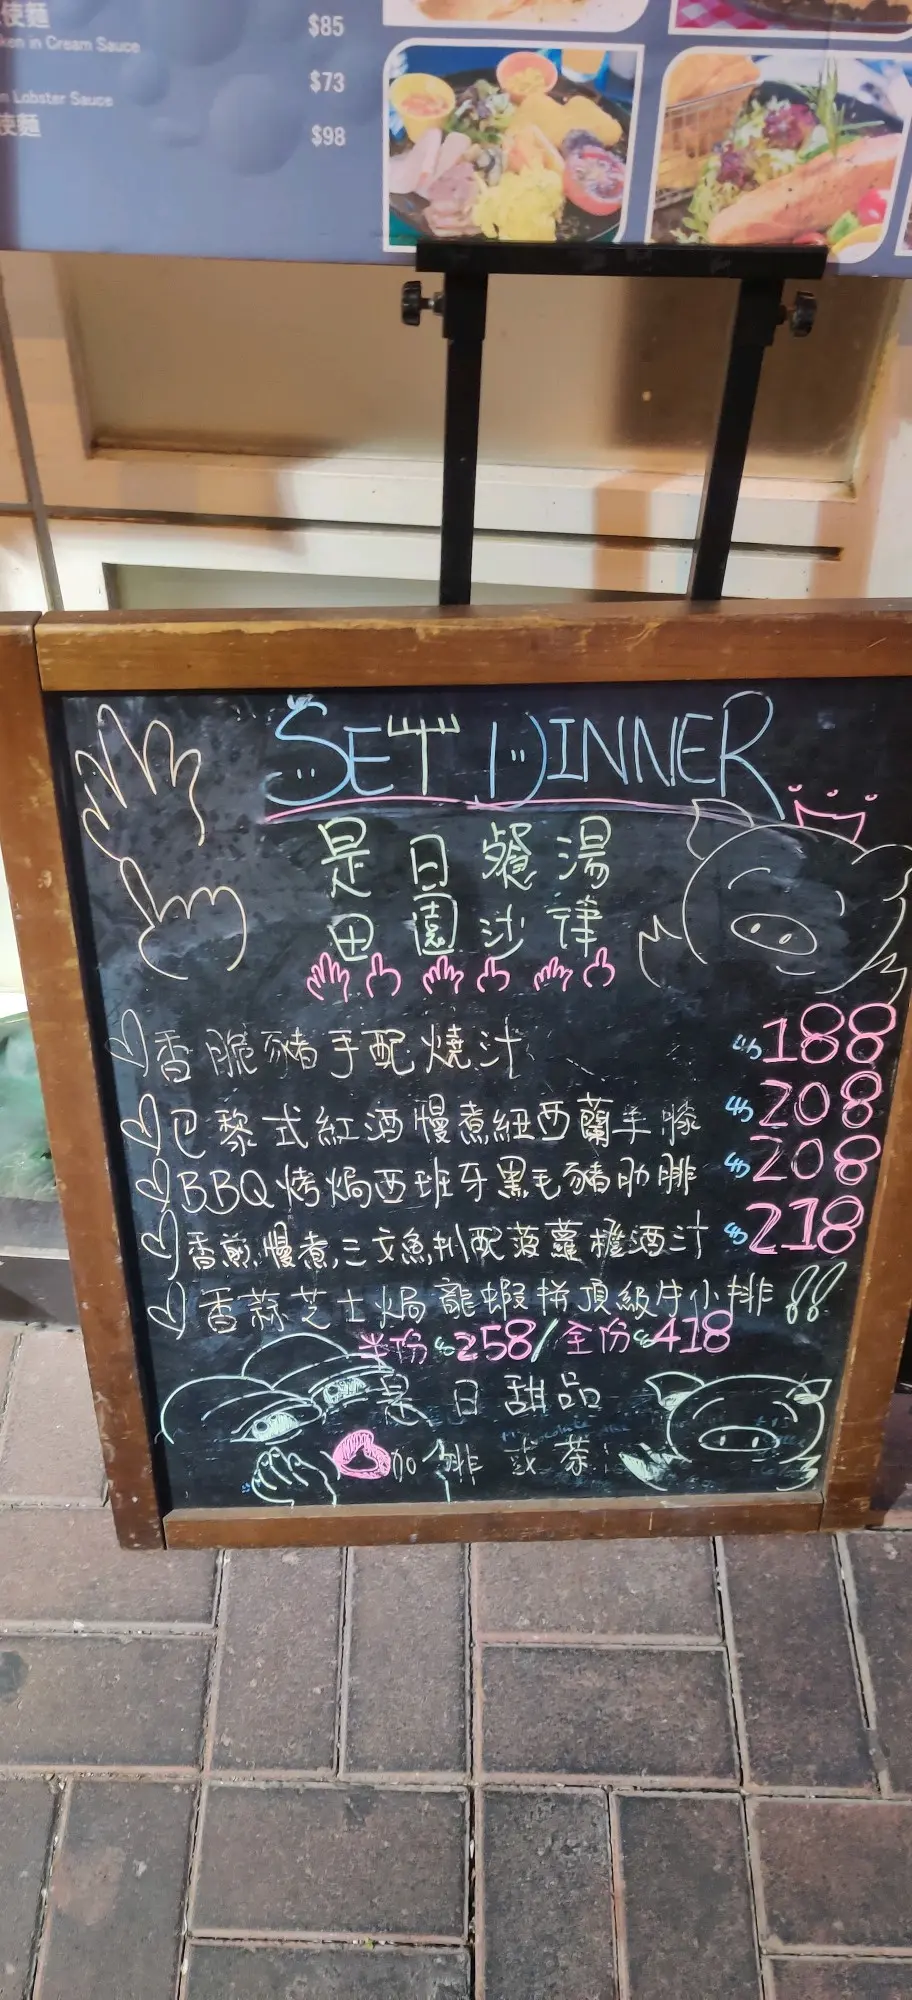 使麵
$85
ken in Cream Sauce
$73
Lobster Sauce
使麵
$98
SET DINNER
是日餐湯
田園沙律
香脆豬手配燒汁 $188
巴黎式紅酒慢煮紐西蘭羊膝 $208
BBQ烤焗西班牙黑毛豬肋排 $208
香煎慢煮三文魚扒配菠蘿橙酒汁 $218
香蒜芝士焗龍蝦拼頂級牛小排!!
半份$258/全份$418
是日甜品
咖啡或茶